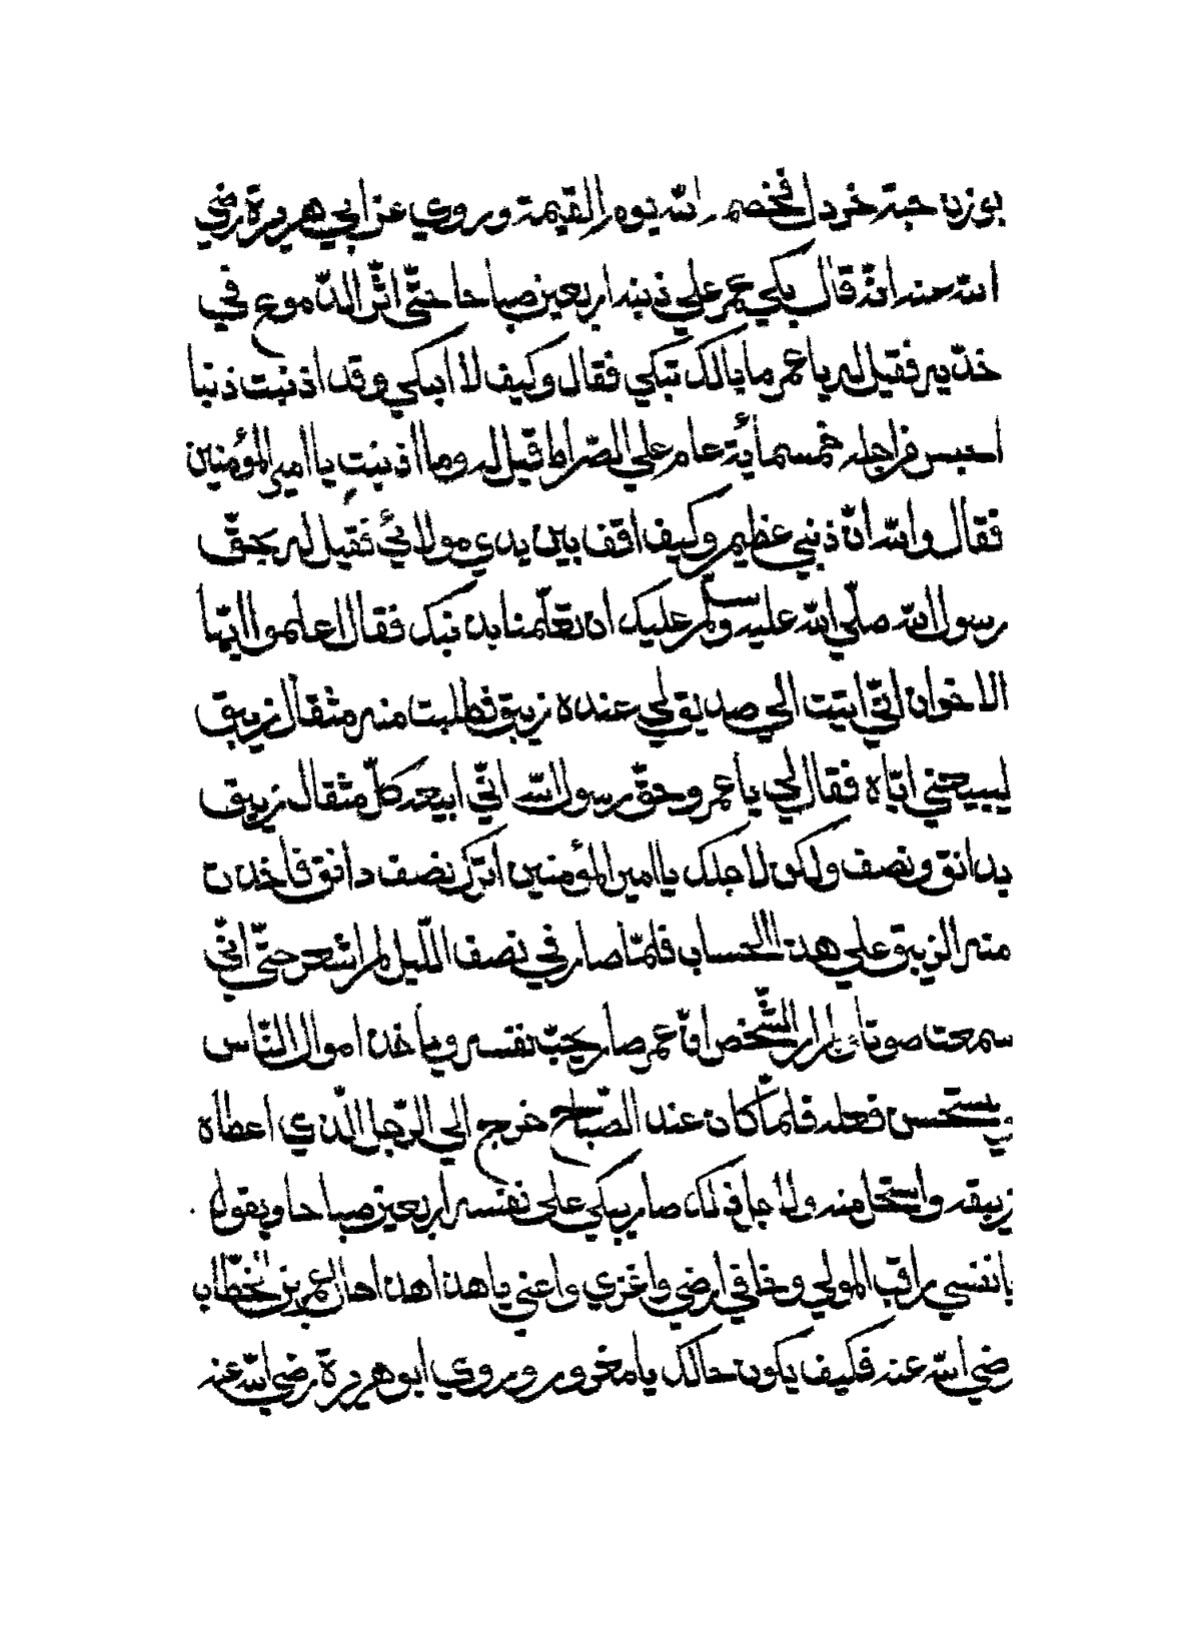 بوزن حبة خردل فخصمه الله يوم القيمة وروي عن ابي هريرة رضي
الله عنه انّه قال بكي عمر علي ذنبه اربعين صباحا حتّي اثّر الدّموع في
خدّيه فقيل له يا عمر ما بالك تبكي فقال وكيف لا ابكي وقد اذنبت ذنبا
احبس من اجله خمسمأية عام علي الصّراط قيل له وما اذنبت يا امير المؤمنين
فقال والله انّ ذنبي عظيم وكيف اقف بين يدي مولائي فقيل له بحقّ
رسول الله صلّي الله عليه وسلّم عليك ان تعلّمنا بذنبك فقال اعلموا ايّها
الاخوان انّي اتيت الي صديق لي عنده زيبق فطلبت منه مثقال زيبق
ليبيعني ايّاه فقال لي يا عمر وحقّ رسول الله انّي ابيعه كلّ مثقال زيبق
بدانق ونصف ولكن لاجلك يا امير المؤمنين اترك نصف دانق فاخذت
منه الزيبق علي هذا الحساب فلمّا صار في نصف اللّيل لم اشعر حتّي انّي
سمعت صوتا لم ار الشّخص انّ عمر صار يحبّ نفسه ويأخذ اموال النّاس
ويستحسن فعله فلمّا كان عند الصّباح خرج الي الرّجل الّذي اعطاه
زيبقه واستحل منه ولاجل ذلك صار يبكي علي نفسه اربعين صباحا ويقول
يا نفسي راقب المولي وخافي ارضي واغزي واعني يا هذا هذا حال عمر بن الخطّاب
رضي الله عنه فكيف يكون حالك يا مغرور وروي ابو هريرة رضي الله عنه